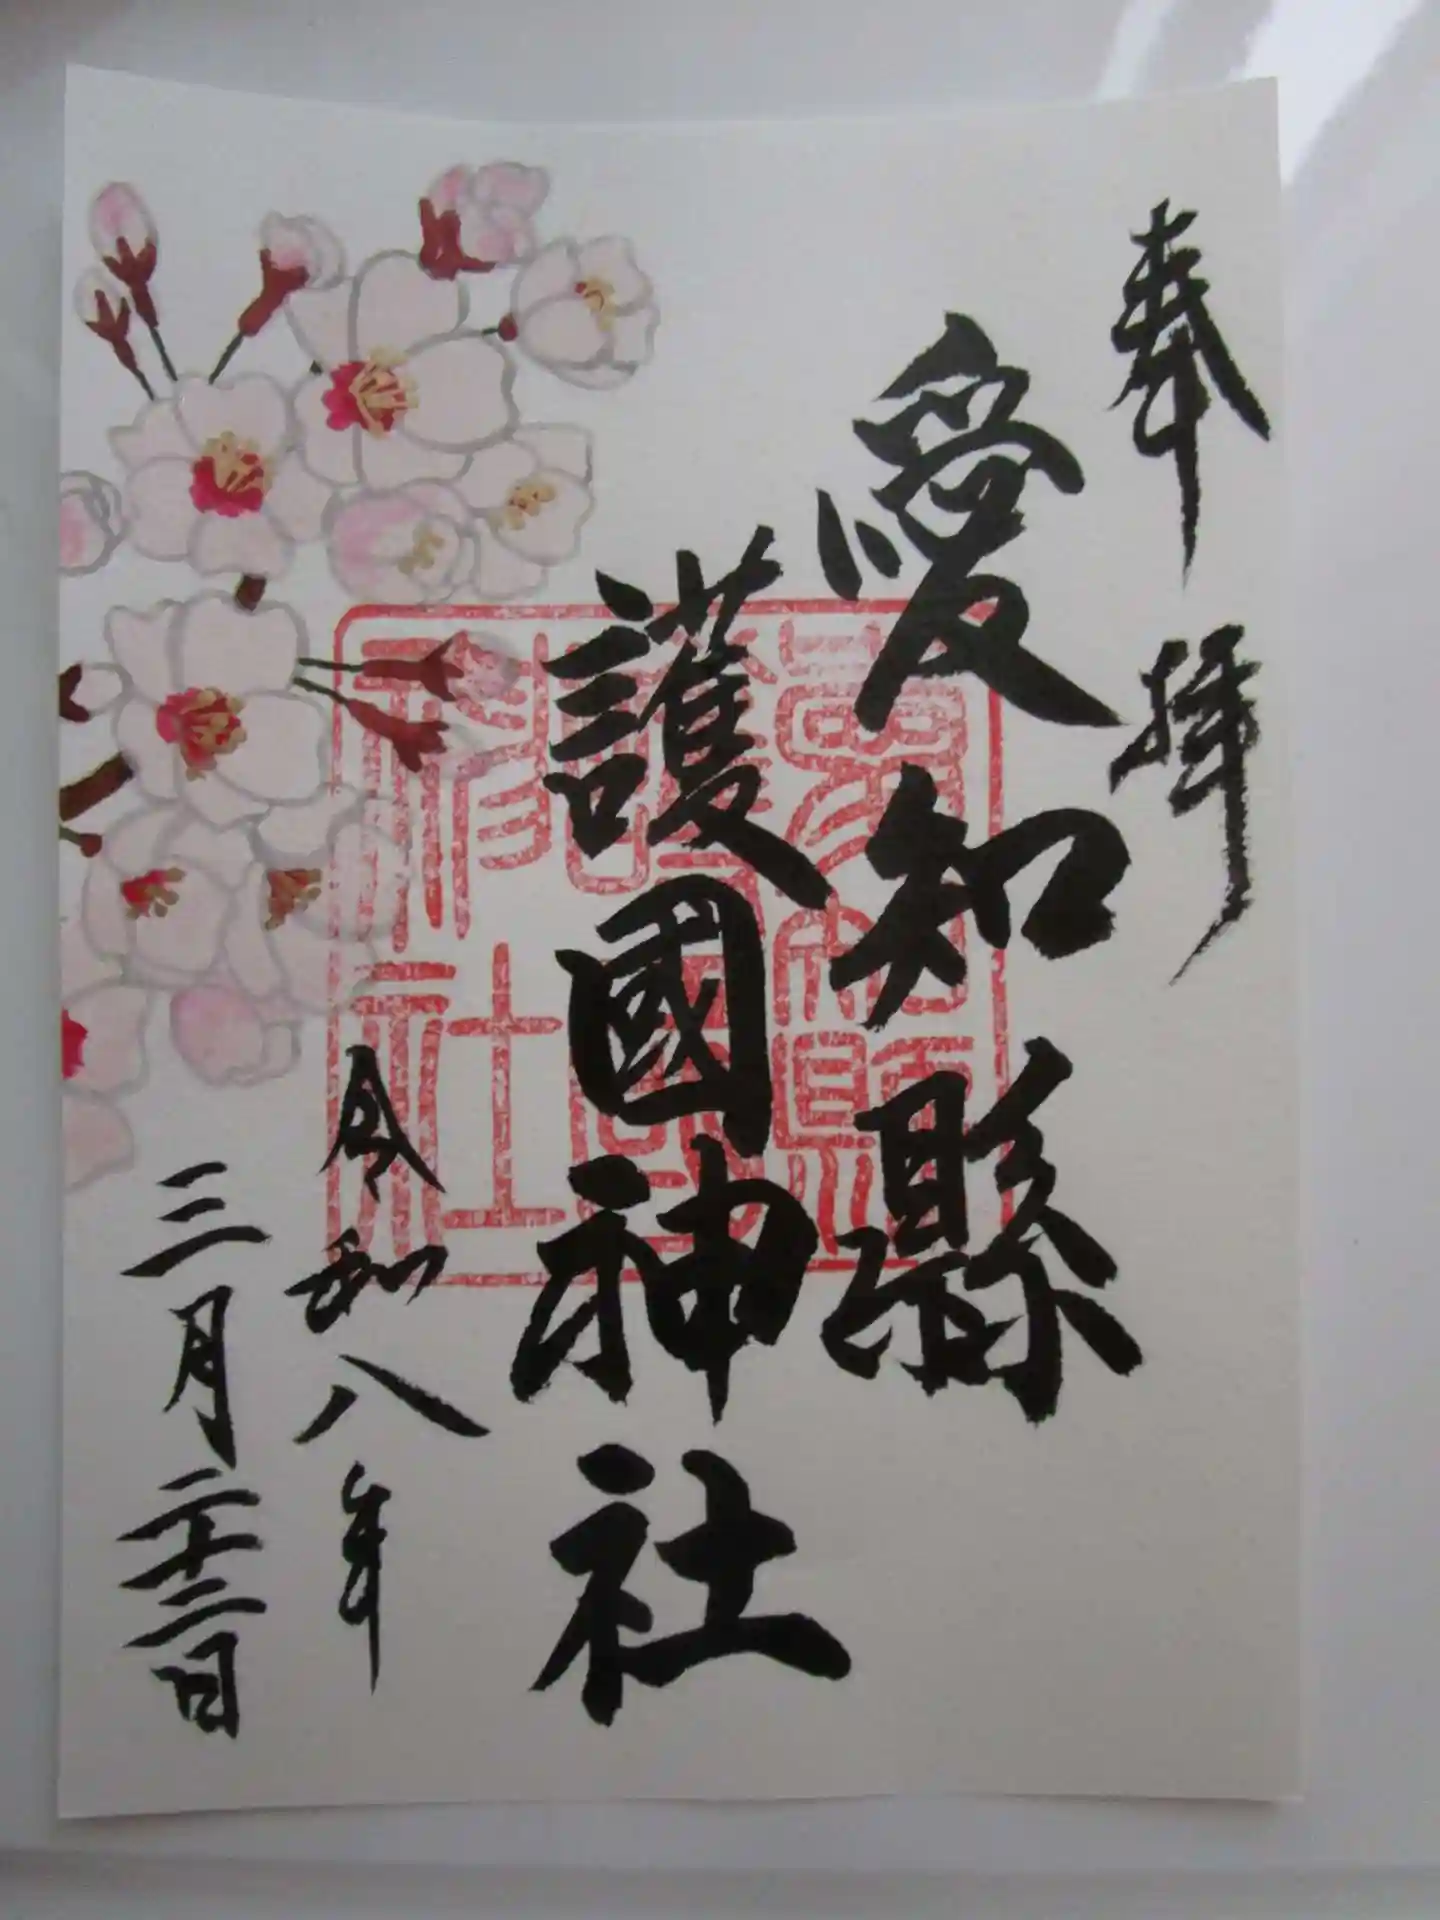 奉拝
愛知縣
護國神社
令和八年
三月二十三日
愛知縣
護國
神社